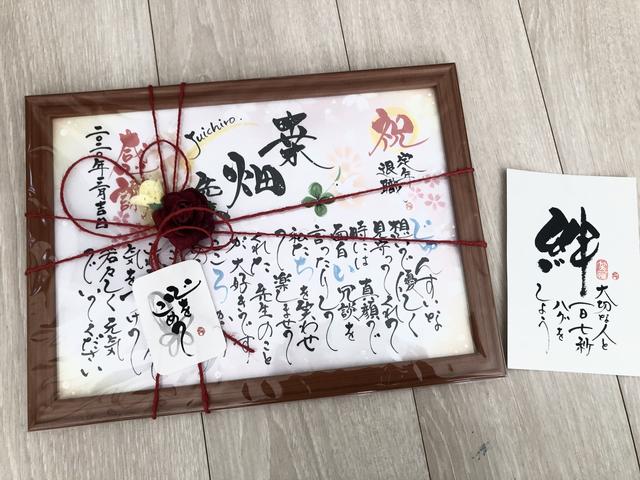 祝
定年
退職
Juichiro.
栗畑
じゅんすいな
想いで優しく
見守ってくれ
時には真顔で
面白い冗談を
言ったりして
私たちを笑わせ
て楽しませて
くれた先生のこと
が大好きです
気をつけて
若々しく元気
でいてください
感謝
二〇二〇年 月吉日
心をこめて
絆
大切な人と
一日七秒
ハグを
しよう